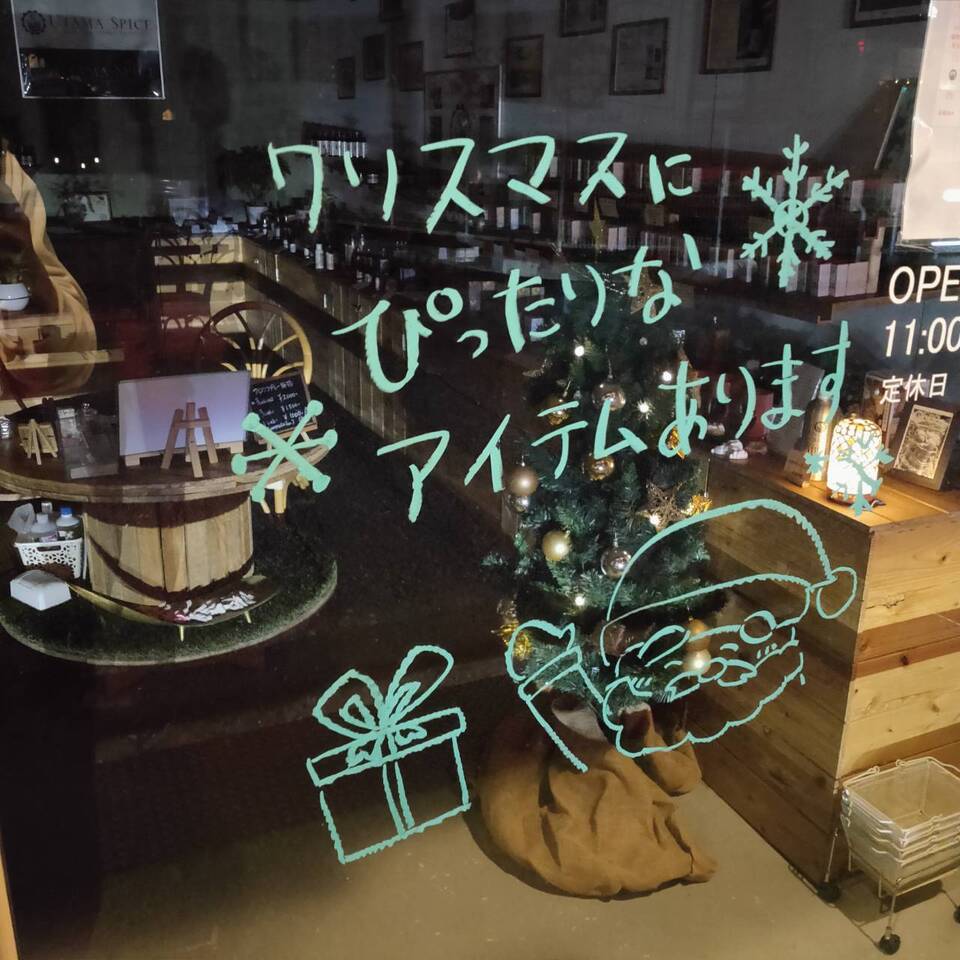 UTAMA SPICE
クリスマスに
ぴったりな
アイテムあります
OPE
11:00
定休日